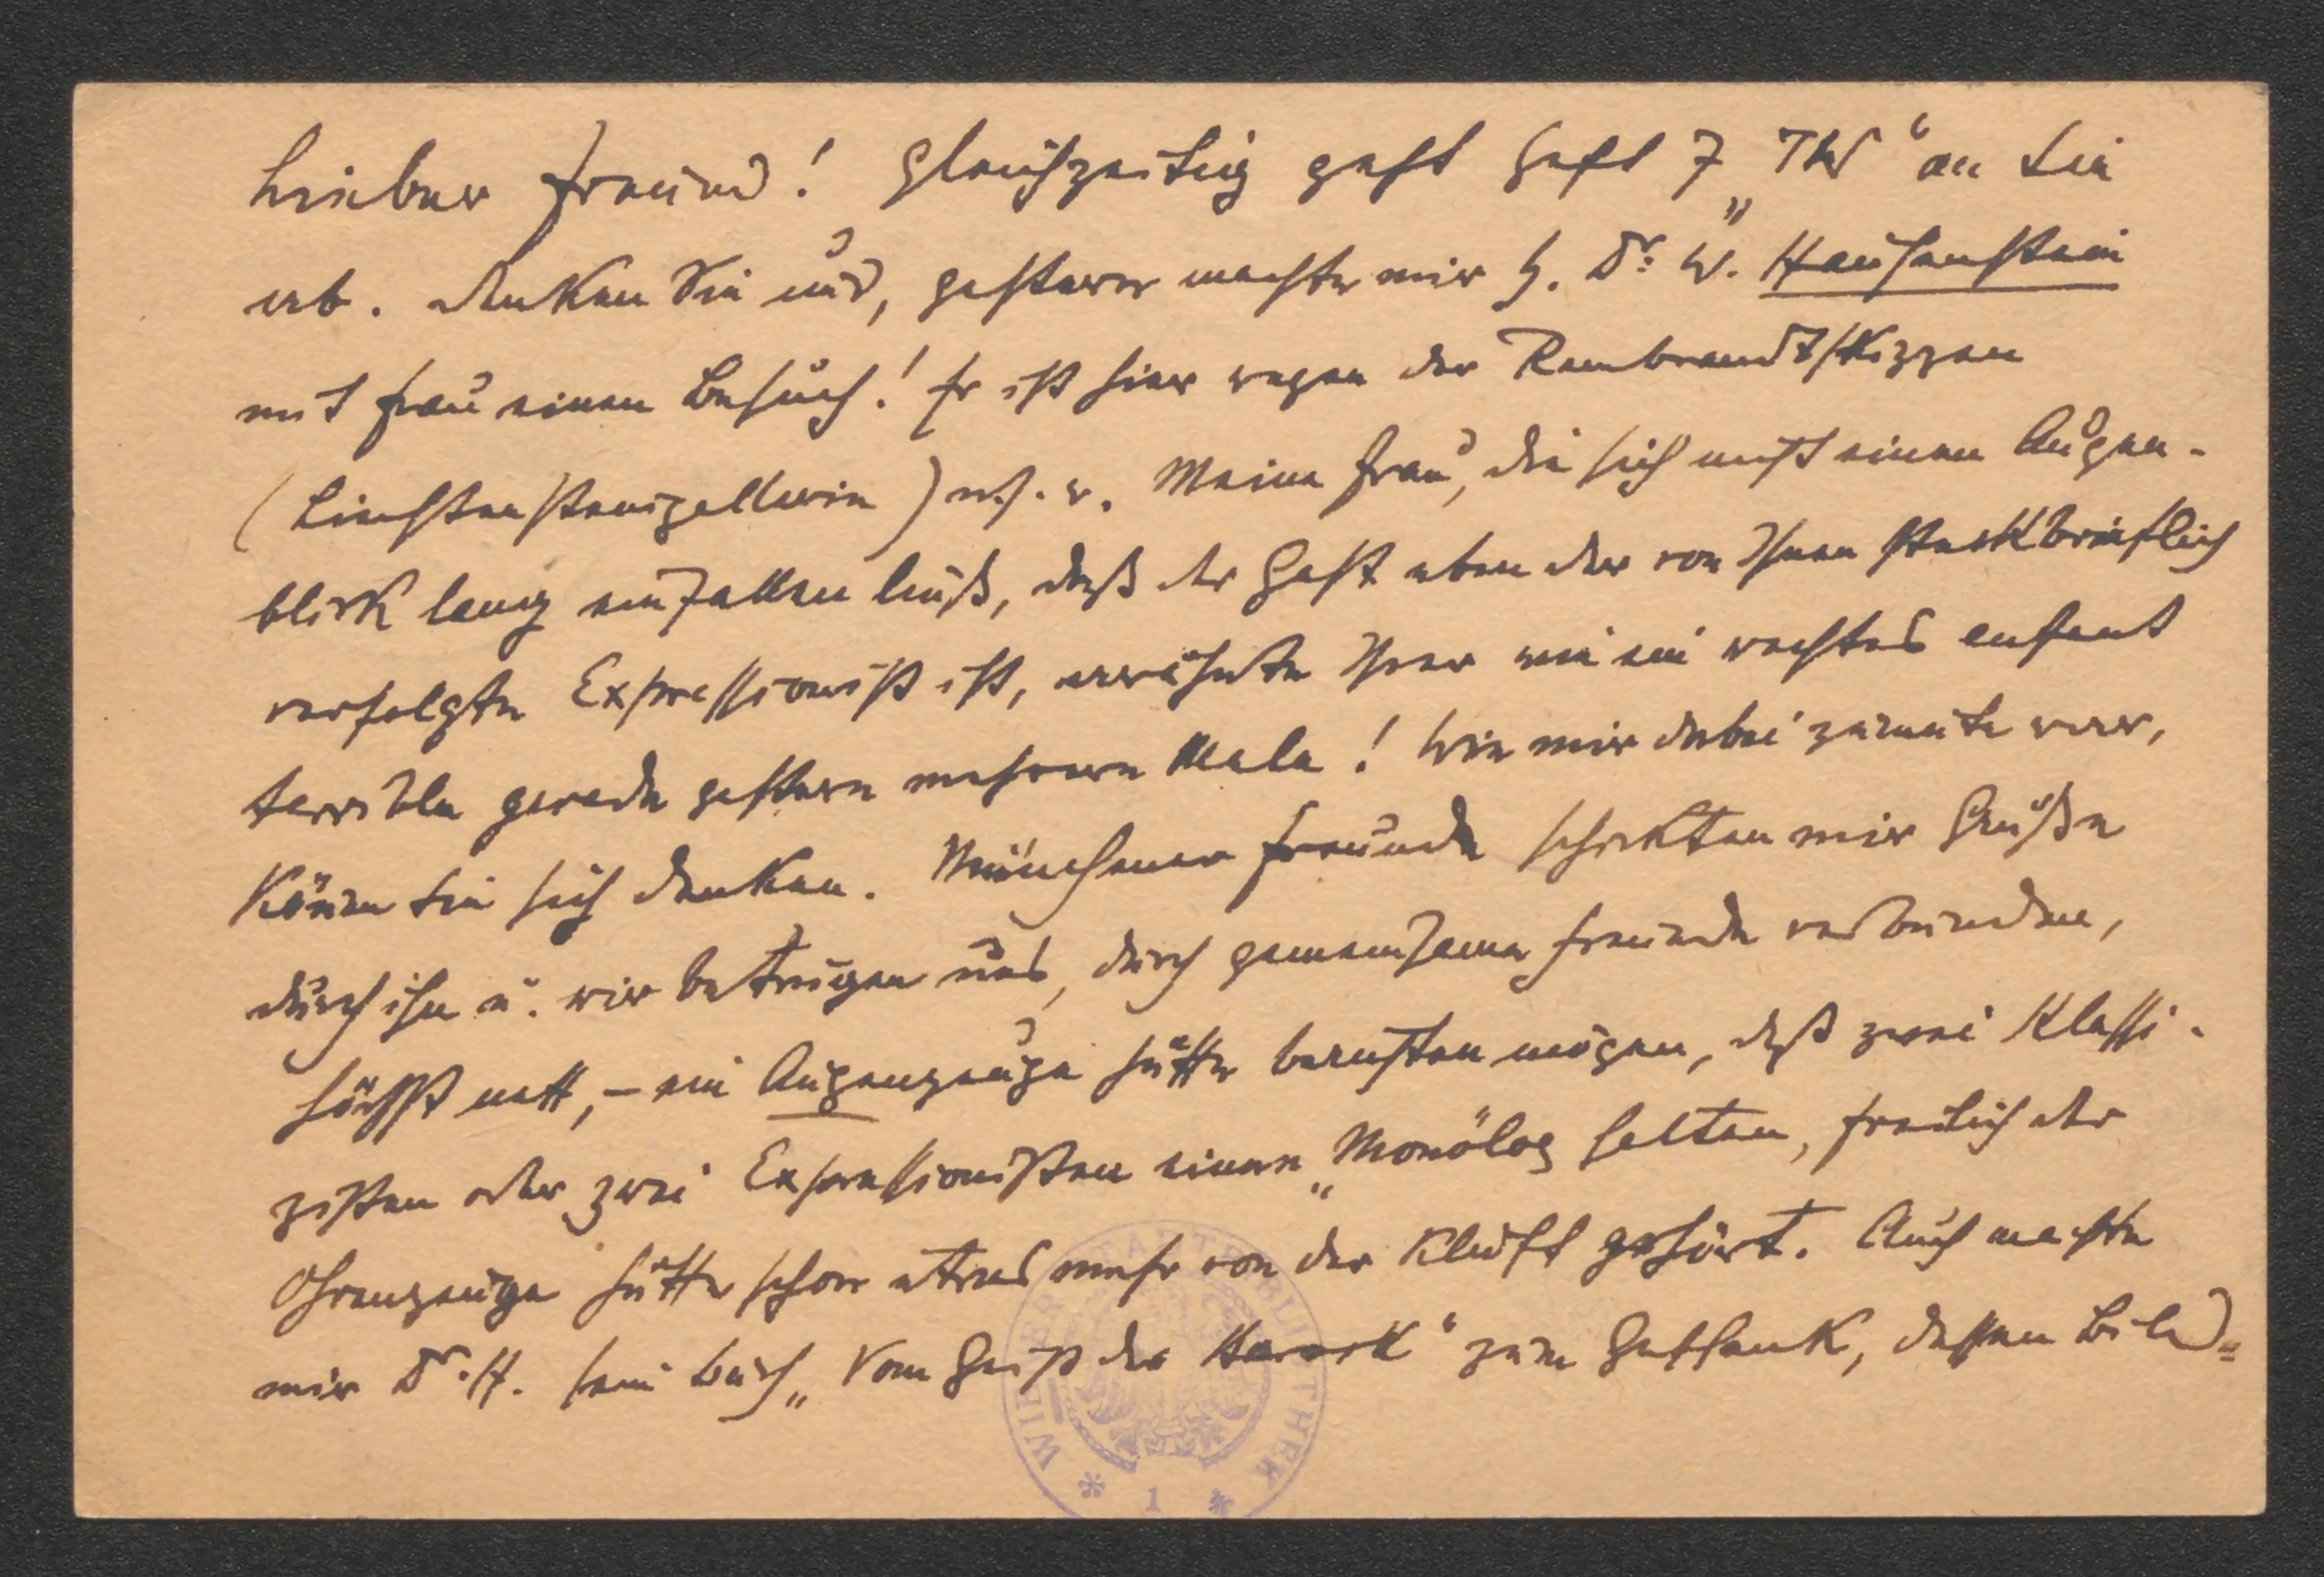 Lieber Freund! Gleichzeitig geht Heft 7 „TW“ an Sie
ab. Denken Sie nur, gestern machte mir H. Dr. W. Hausenstein
mit Frau einen Besuch! Er ist hier wegen der Rembrandtskizzen
(Liechtensteingallerie) u.s.w. Meine Frau, die sich nicht einen Augen-
blick lang einfallen ließ, daß der Gast eben der von Ihnen steckbrieflich
verfolgte Expressionist ist, erwähnte Ihrer wie ein rechtes enfant
terrible gerade gestern mehrere Male! Wie mir dabei zumute war,
können Sie sich denken. Münchener Freunde schickten mir Grüße
durch ihn u. wir betrugen uns, durch gemeinsame Freunde verbunden,
höchst nett, – ein Augenzeuge hätte bereuten mögen, daß zwei Klassi-
zisten oder zwei Expressionisten einen „Monolog halten, freilich der
Ohrenzeuge hätte schon etwas mehr von der Kluft gehört. Auch machte
mir Dr. H. sein Buch „Vom Geist des Barock“ zum Geschenk, dessen Bild=
WIENER STADTBIBLIOTHEK
* 1 *